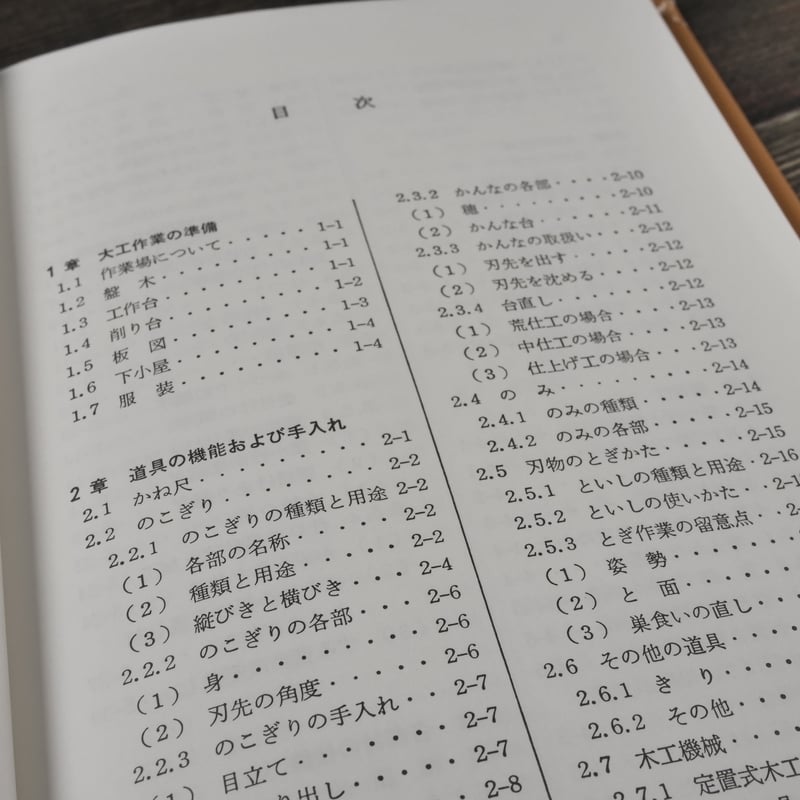 目 次
1章 大工作業の準備
1.1 作業場について・・・・・1-1
1.2 盤 木・・・・・・・・・1-1
1.3 工作台・・・・・・・・・1-1
1.4 削り台・・・・・・・・・1-2
1.5 板 図・・・・・・・・・1-3
1.6 下小屋・・・・・・・・・1-4
1.7 服 装・・・・・・・・・1-4
2章 道具の機能および手入れ
2.1 かね尺・・・・・・・・・2-1
2.2 のこぎり・・・・・・・・2-2
2.2.1 のこぎりの種類と用途 2-2
(1) 各部の名称・・・・・2-2
(2) 種類と用途・・・・・2-2
(3) 縦びきと横びき・・・2-4
2.2.2 のこぎりの各部・・・2-6
(1) 身・・・・・・・・・2-6
(2) 刃先の角度・・・・・2-6
2.2.3 のこぎりの手入れ・・2-7
(1) 目立て・・・・・・・2-7
り出し・・・・・・2-7
2-8
2.3.2 かんなの各部・・・・2-10
(1) 穂・・・・・・・・・2-10
(2) かんな台・・・・・・2-11
2.3.3 かんなの取扱い・・・2-12
(1) 刃先を出す・・・・・2-12
(2) 刃先を沈める・・・・2-12
2.3.4 台直し・・・・・・・2-12
(1) 荒仕工の場合・・・・2-13
(2) 中仕工の場合・・・・2-13
(3) 仕上げ工の場合・・・2-13
2.4 の み・・・・・・・・・2-14
2.4.1 のみの種類・・・・・2-14
2.4.2 のみの各部・・・・・2-15
2.5 刃物のとぎかた・・・・・2-15
2.5.1 といしの種類と用途・2-16
2.5.2 といしの使いかた・・2-1
2.5.3 とぎ作業の留意点・・2-
(1) 姿 勢・・・・・・・
(2) と 面・・・・・・・
(3) 巣食いの直し・・・
2.6 その他の道具・・・・
2.6.1 き り・・・・・・
2.6.2 その他・・・・・
2.7 木工機械・・・・・
2.7.1 定置式木工